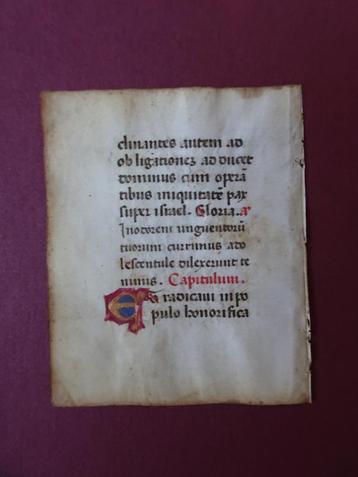 clinantes autem ad
obligationez ad ducet
dominus cum operā
tibus iniquitatē pax
super israel. Gloria. a
Inodorem unguentorū
tuorum currimus ado
lescentule dilexerunt te
nimis. Capitulum.
Et radicavi in po
pulo honorifica